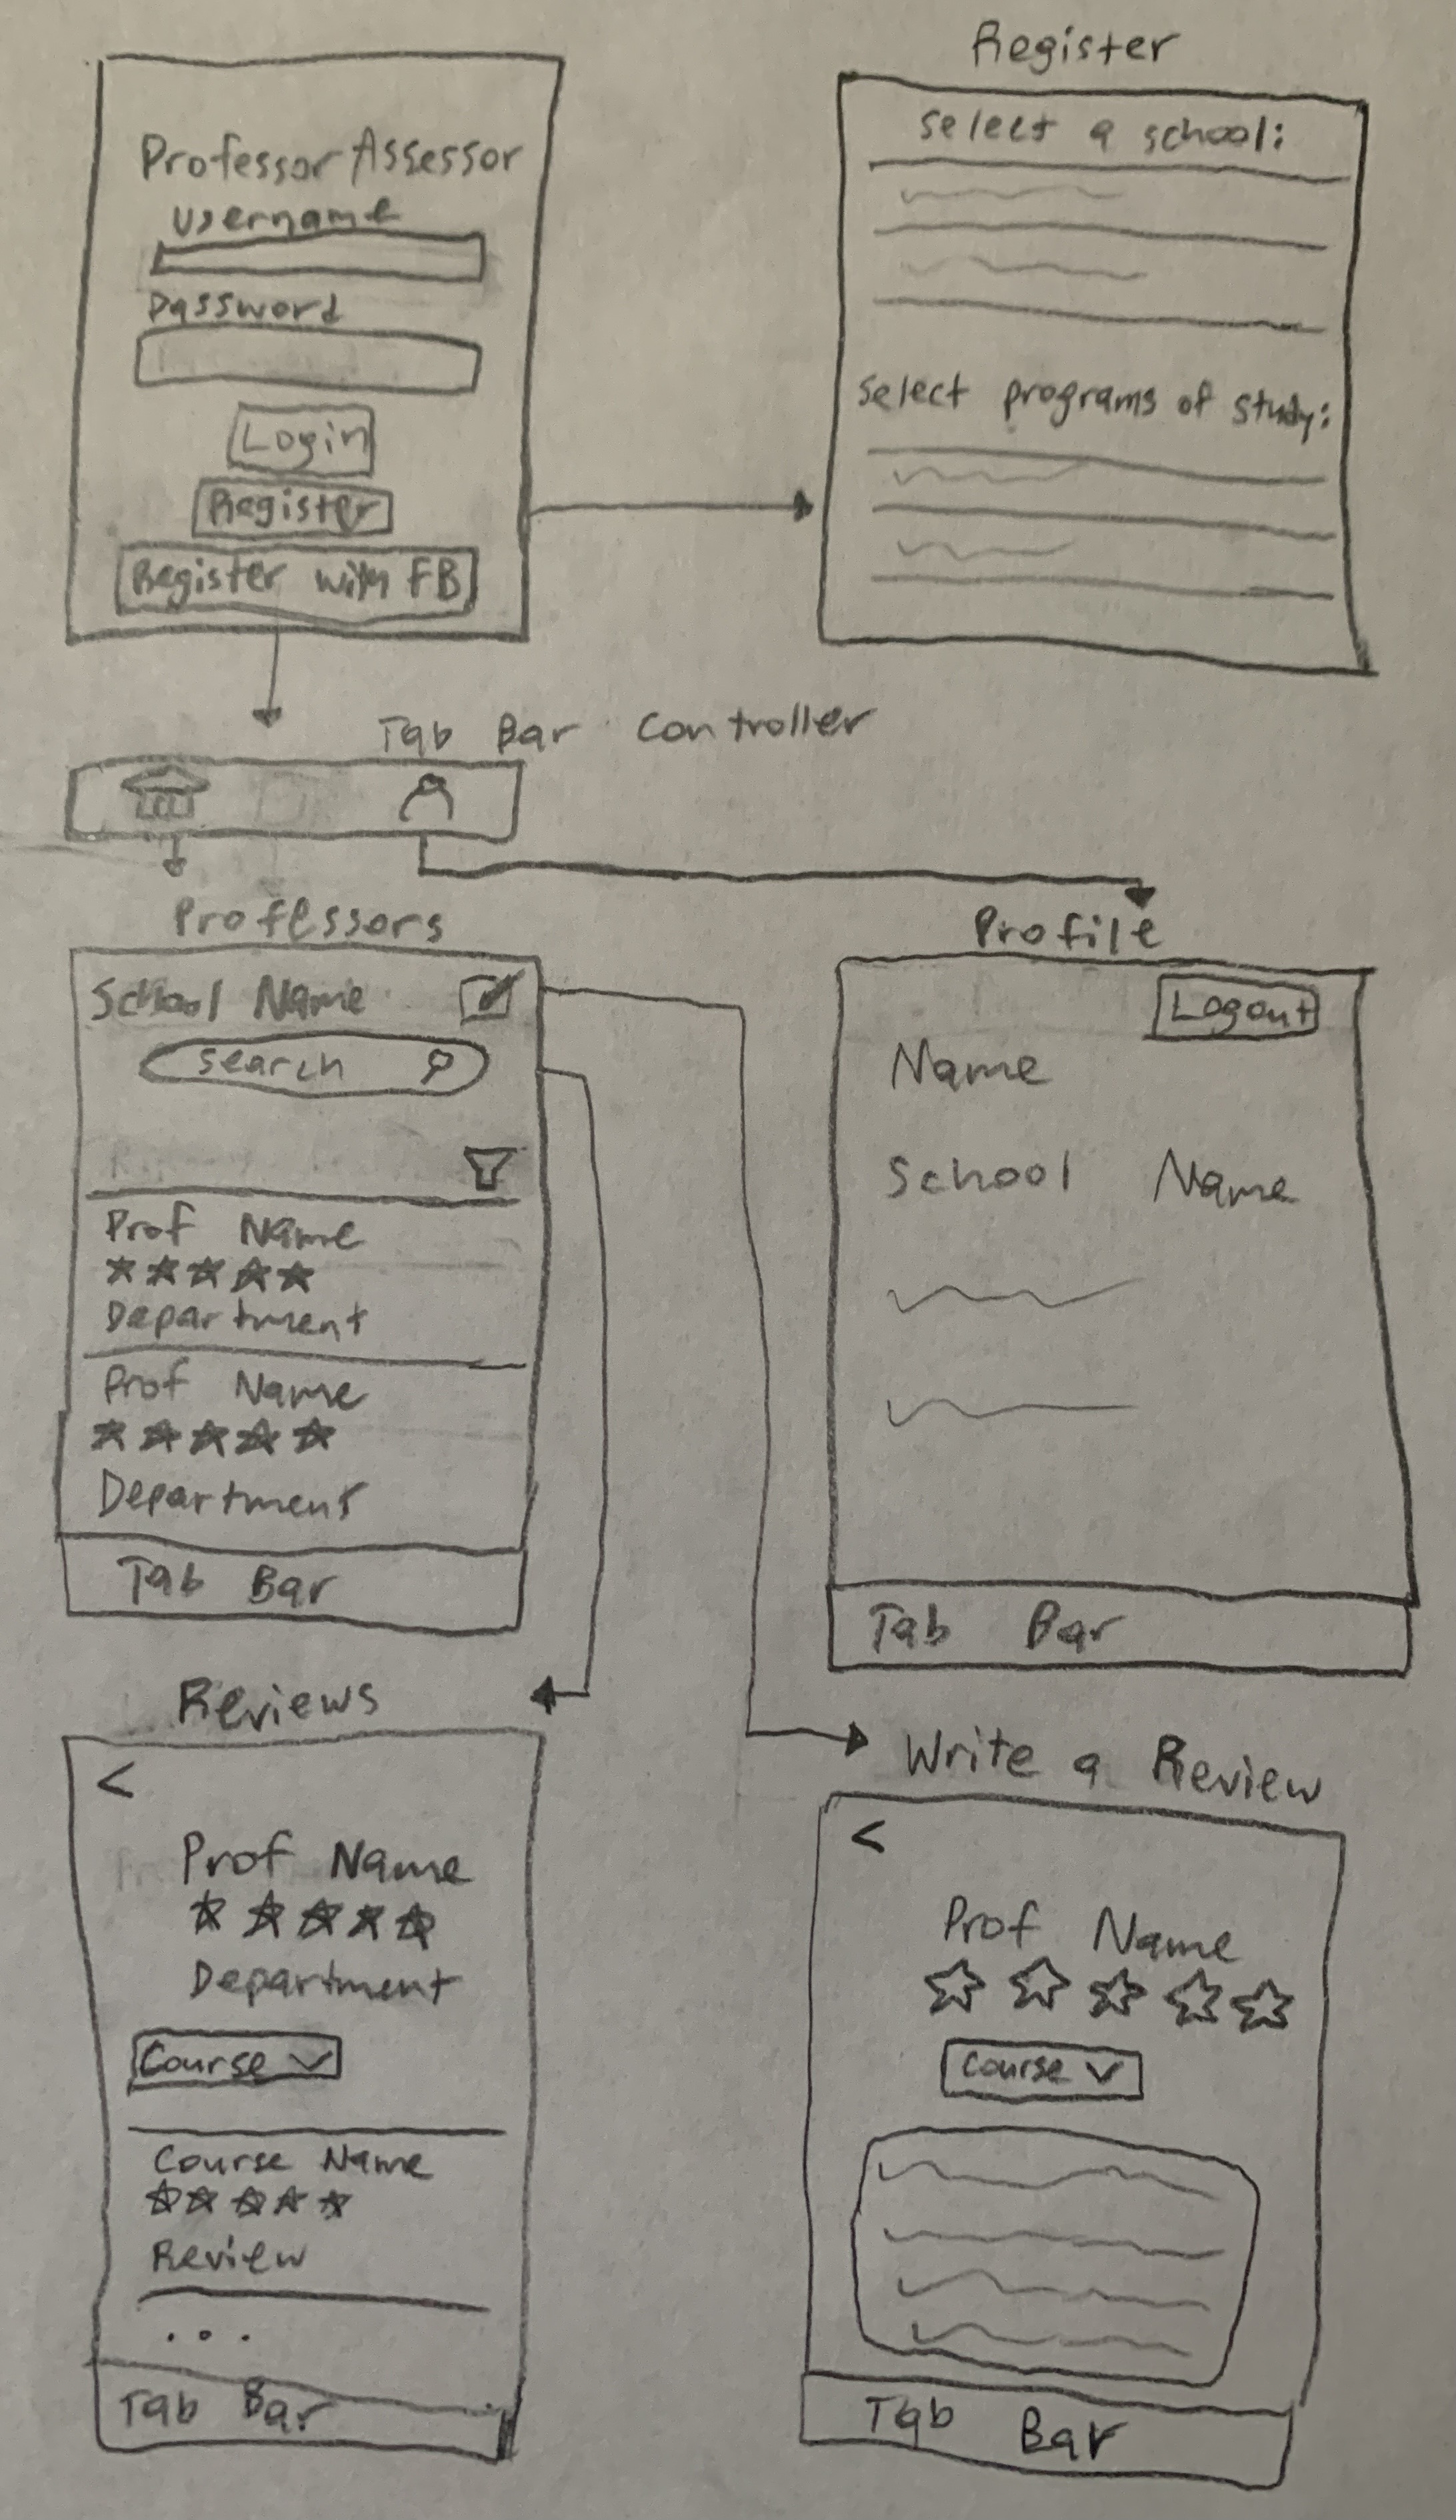 Register
Professor Assessor
Username
Password
Login
Register
Register with FB
select a school:
select programs of study:
Tab Bar Controller
Professors
School Name
search
Prof Name
Department
Prof Name
Department
Tab Bar
Profile
Logout
Name
School Name
Tab Bar
Reviews
<
Prof Name
Department
Course
Course Name
Review
...
Tab Bar
Write a Review
<
Prof Name
Course
Tab Bar